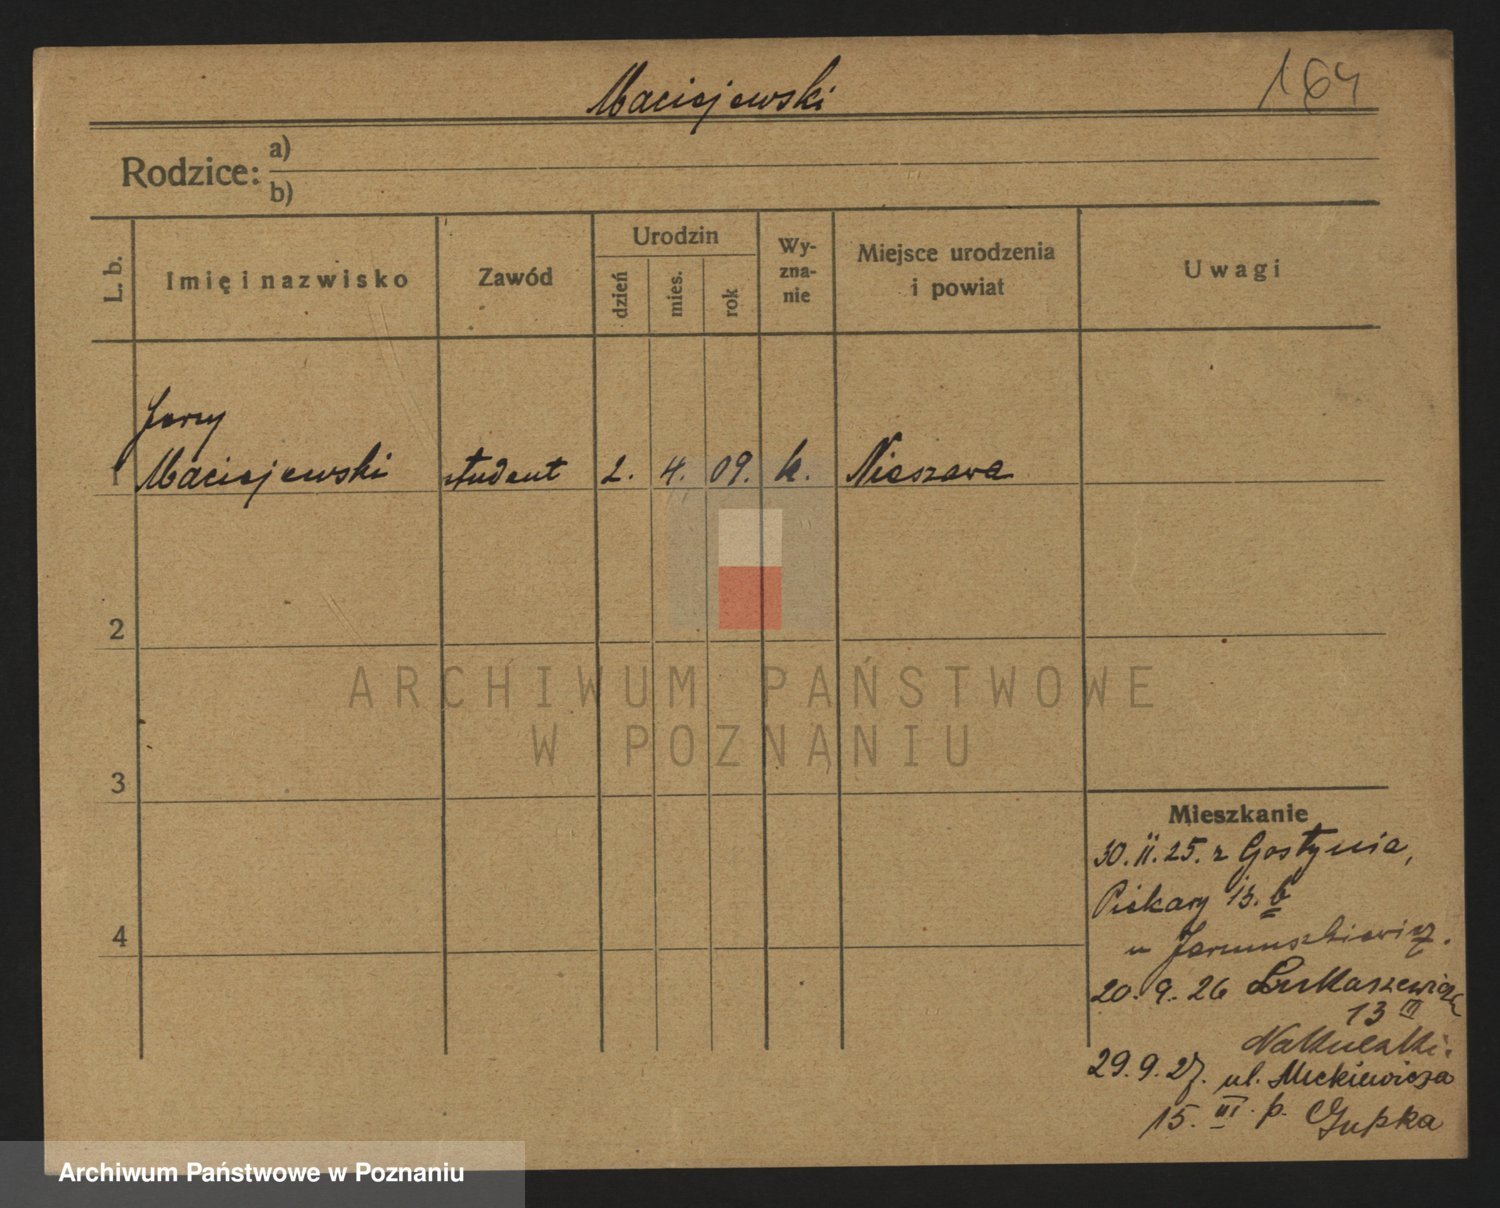 Maciejewski
164
Rodzice:
a)
b)
L. b.
Imię i nazwisko
Zawód
Urodzin
dzień
mies.
rok
Wy-
zna-
nie
Miejsce urodzenia
i powiat
Uwagi
Jerzy
1 Maciejewski student 2. 4. 09. k. Nieszawa
2
3
4
ARCHIWUM PAŃSTWOWE
W POZNANIU
Mieszkanie
30. II. 25. z Gostynia,
Piekary 13. b
u Jarmuszkiewicz.
20. 9. 26 Łukaszewicza
13 III
29. 9. 27. ul. Mickiewicza
15. III. p. Gupka
Archiwum Państwowe w Poznaniu